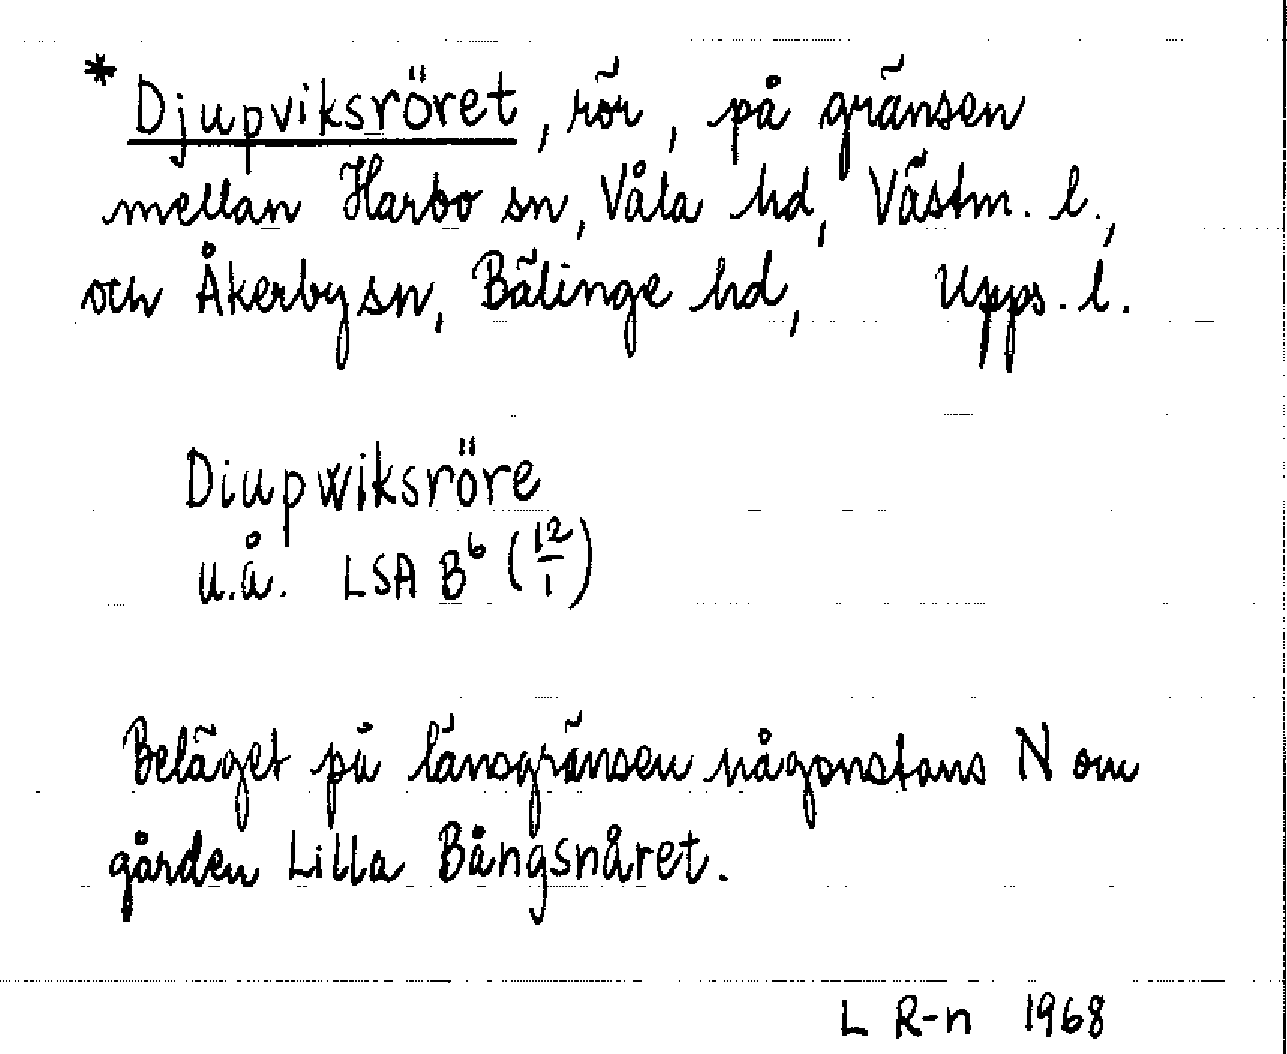 * Djupviksröret, rör, på gränsen
mellan Harbo sn, Våla hd, Västm. l.,
och Åkerby sn, Bälinge hd, Upps. l.
Diupwiksröre
u.å. LSA B⁶ (12/1)
Beläget på länsgränsen någonstans N om
gården Lilla Bångsnåret.
L R-n 1968